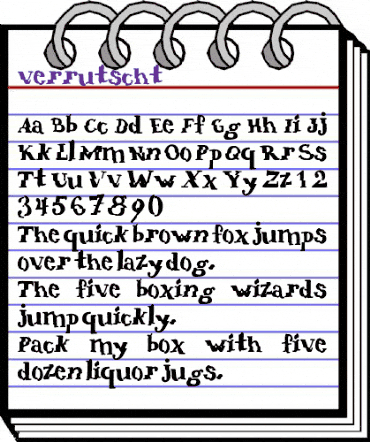 verrutscht
Aa Bb Cc Dd Ee Ff Gg Hh Ii Jj
Kk Ll Mm Nn Oo Pp Qq Rr Ss
Tt Uu Vv Ww Xx Yy Zz 1 2
3 4 5 6 7 8 9 0
The quick brown fox jumps
over the lazy dog.
The five boxing wizards
jump quickly.
Pack my box with five
dozen liquor jugs.